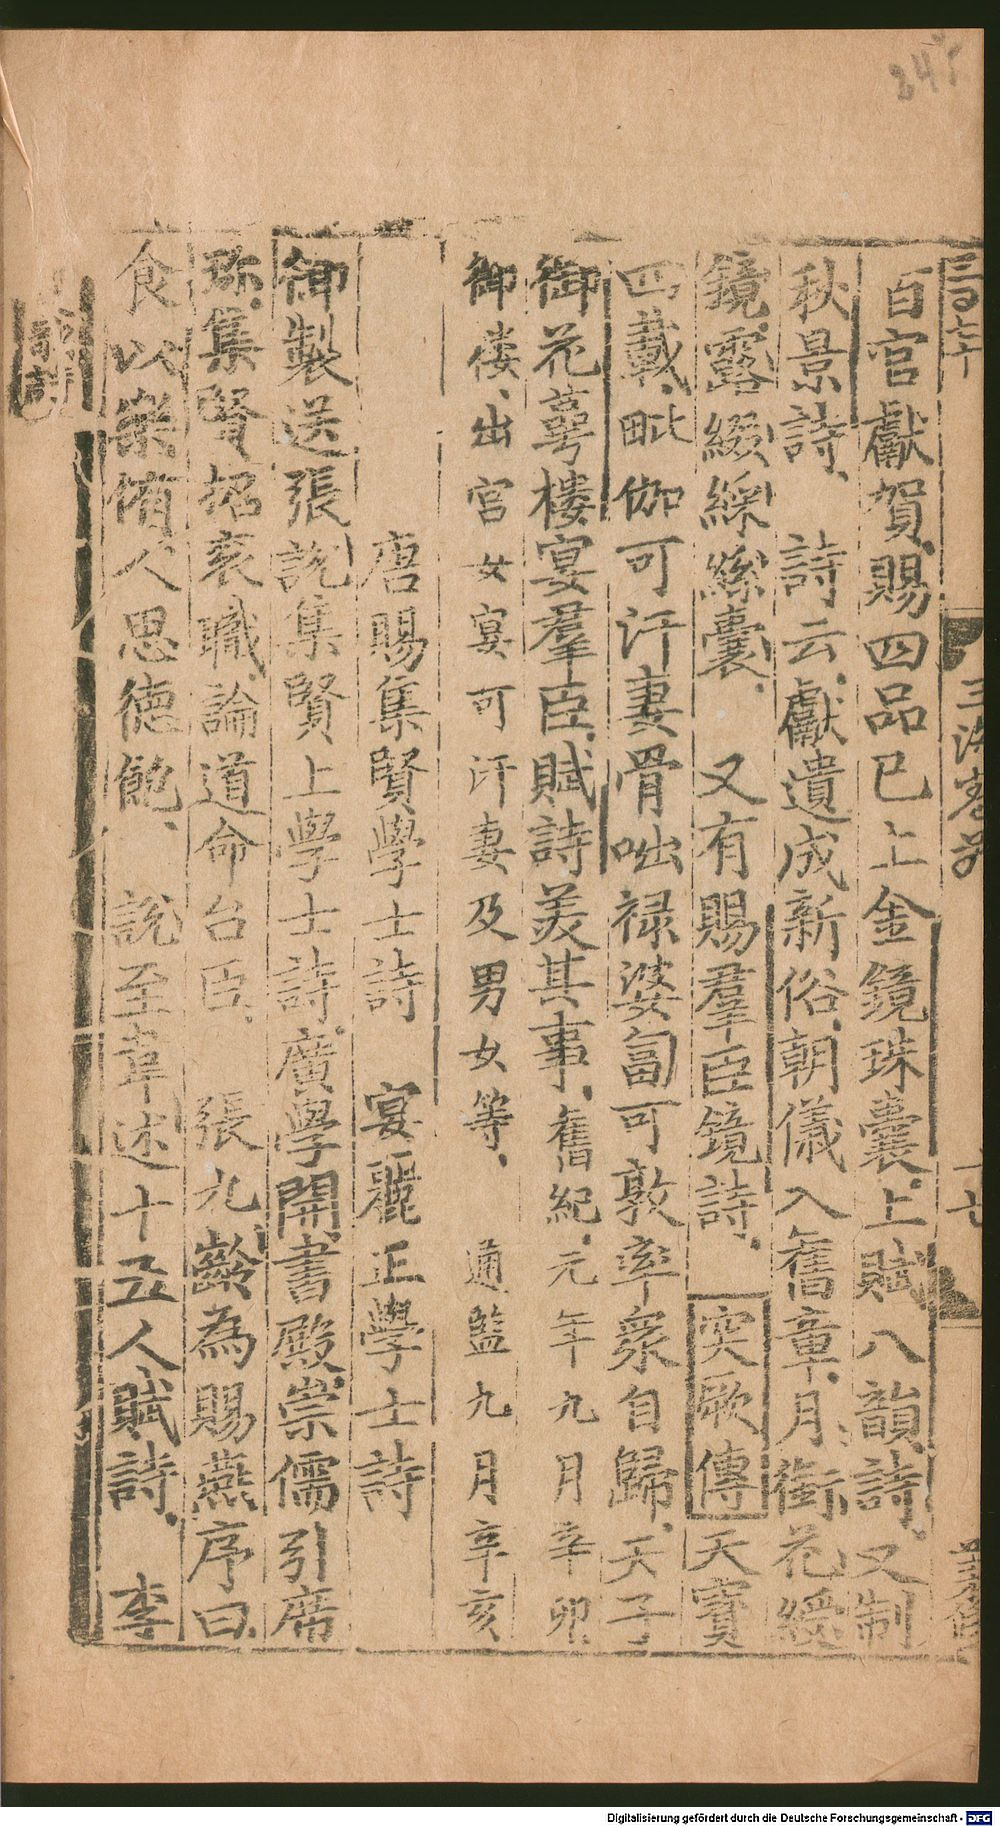 百官獻賀賜四品已上金鏡珠囊上賦八韻詩又制
秋景詩 詩云獻遺成新俗朝儀入舊章月銜花綬
鏡露綴綵絲囊 又有賜羣臣鏡詩 突厥傳天寶
四載毗伽可汗妻骨咄祿婆匐可敦率衆自歸天子
御花萼樓宴羣臣賦詩美其事舊紀元年九月辛卯
御樓出宮女宴可汗妻及男女等 通鑑九月辛亥
唐賜集賢學士詩 宴麗正學士詩
御製送張說集賢上學士詩廣學開書殿崇儒引席
珍集賢招袞職論道命台臣 張九齡為賜燕序曰
食以樂侑人思德飽 說至韋述十五人賦詩 李
十七
詞詩
Digitalisierung gefördert durch die Deutsche Forschungsgemeinschaft - DFG